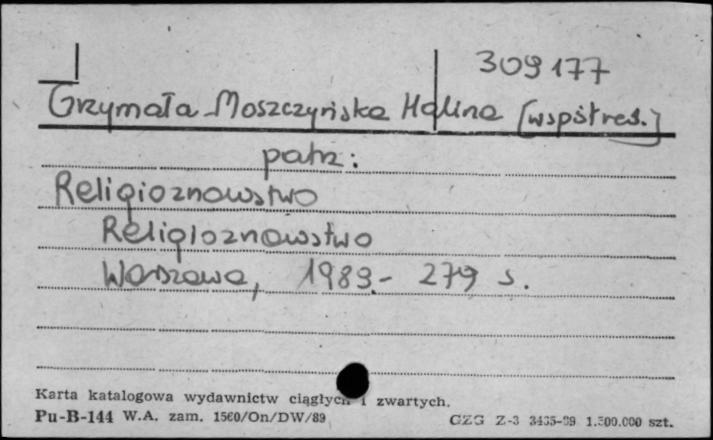 309177
Grzymała-Moszczyńska Halina [współred.]
patrz:
Religioznawstwo
Religioznawstwo
Warszawa, 1989.- 279 s.
Karta katalogowa wydawnictw ciągłych i zwartych.
Pu-B-144 W.A. zam. 1560/On/DW/89 GZG Z-3 1.500.000 szt.